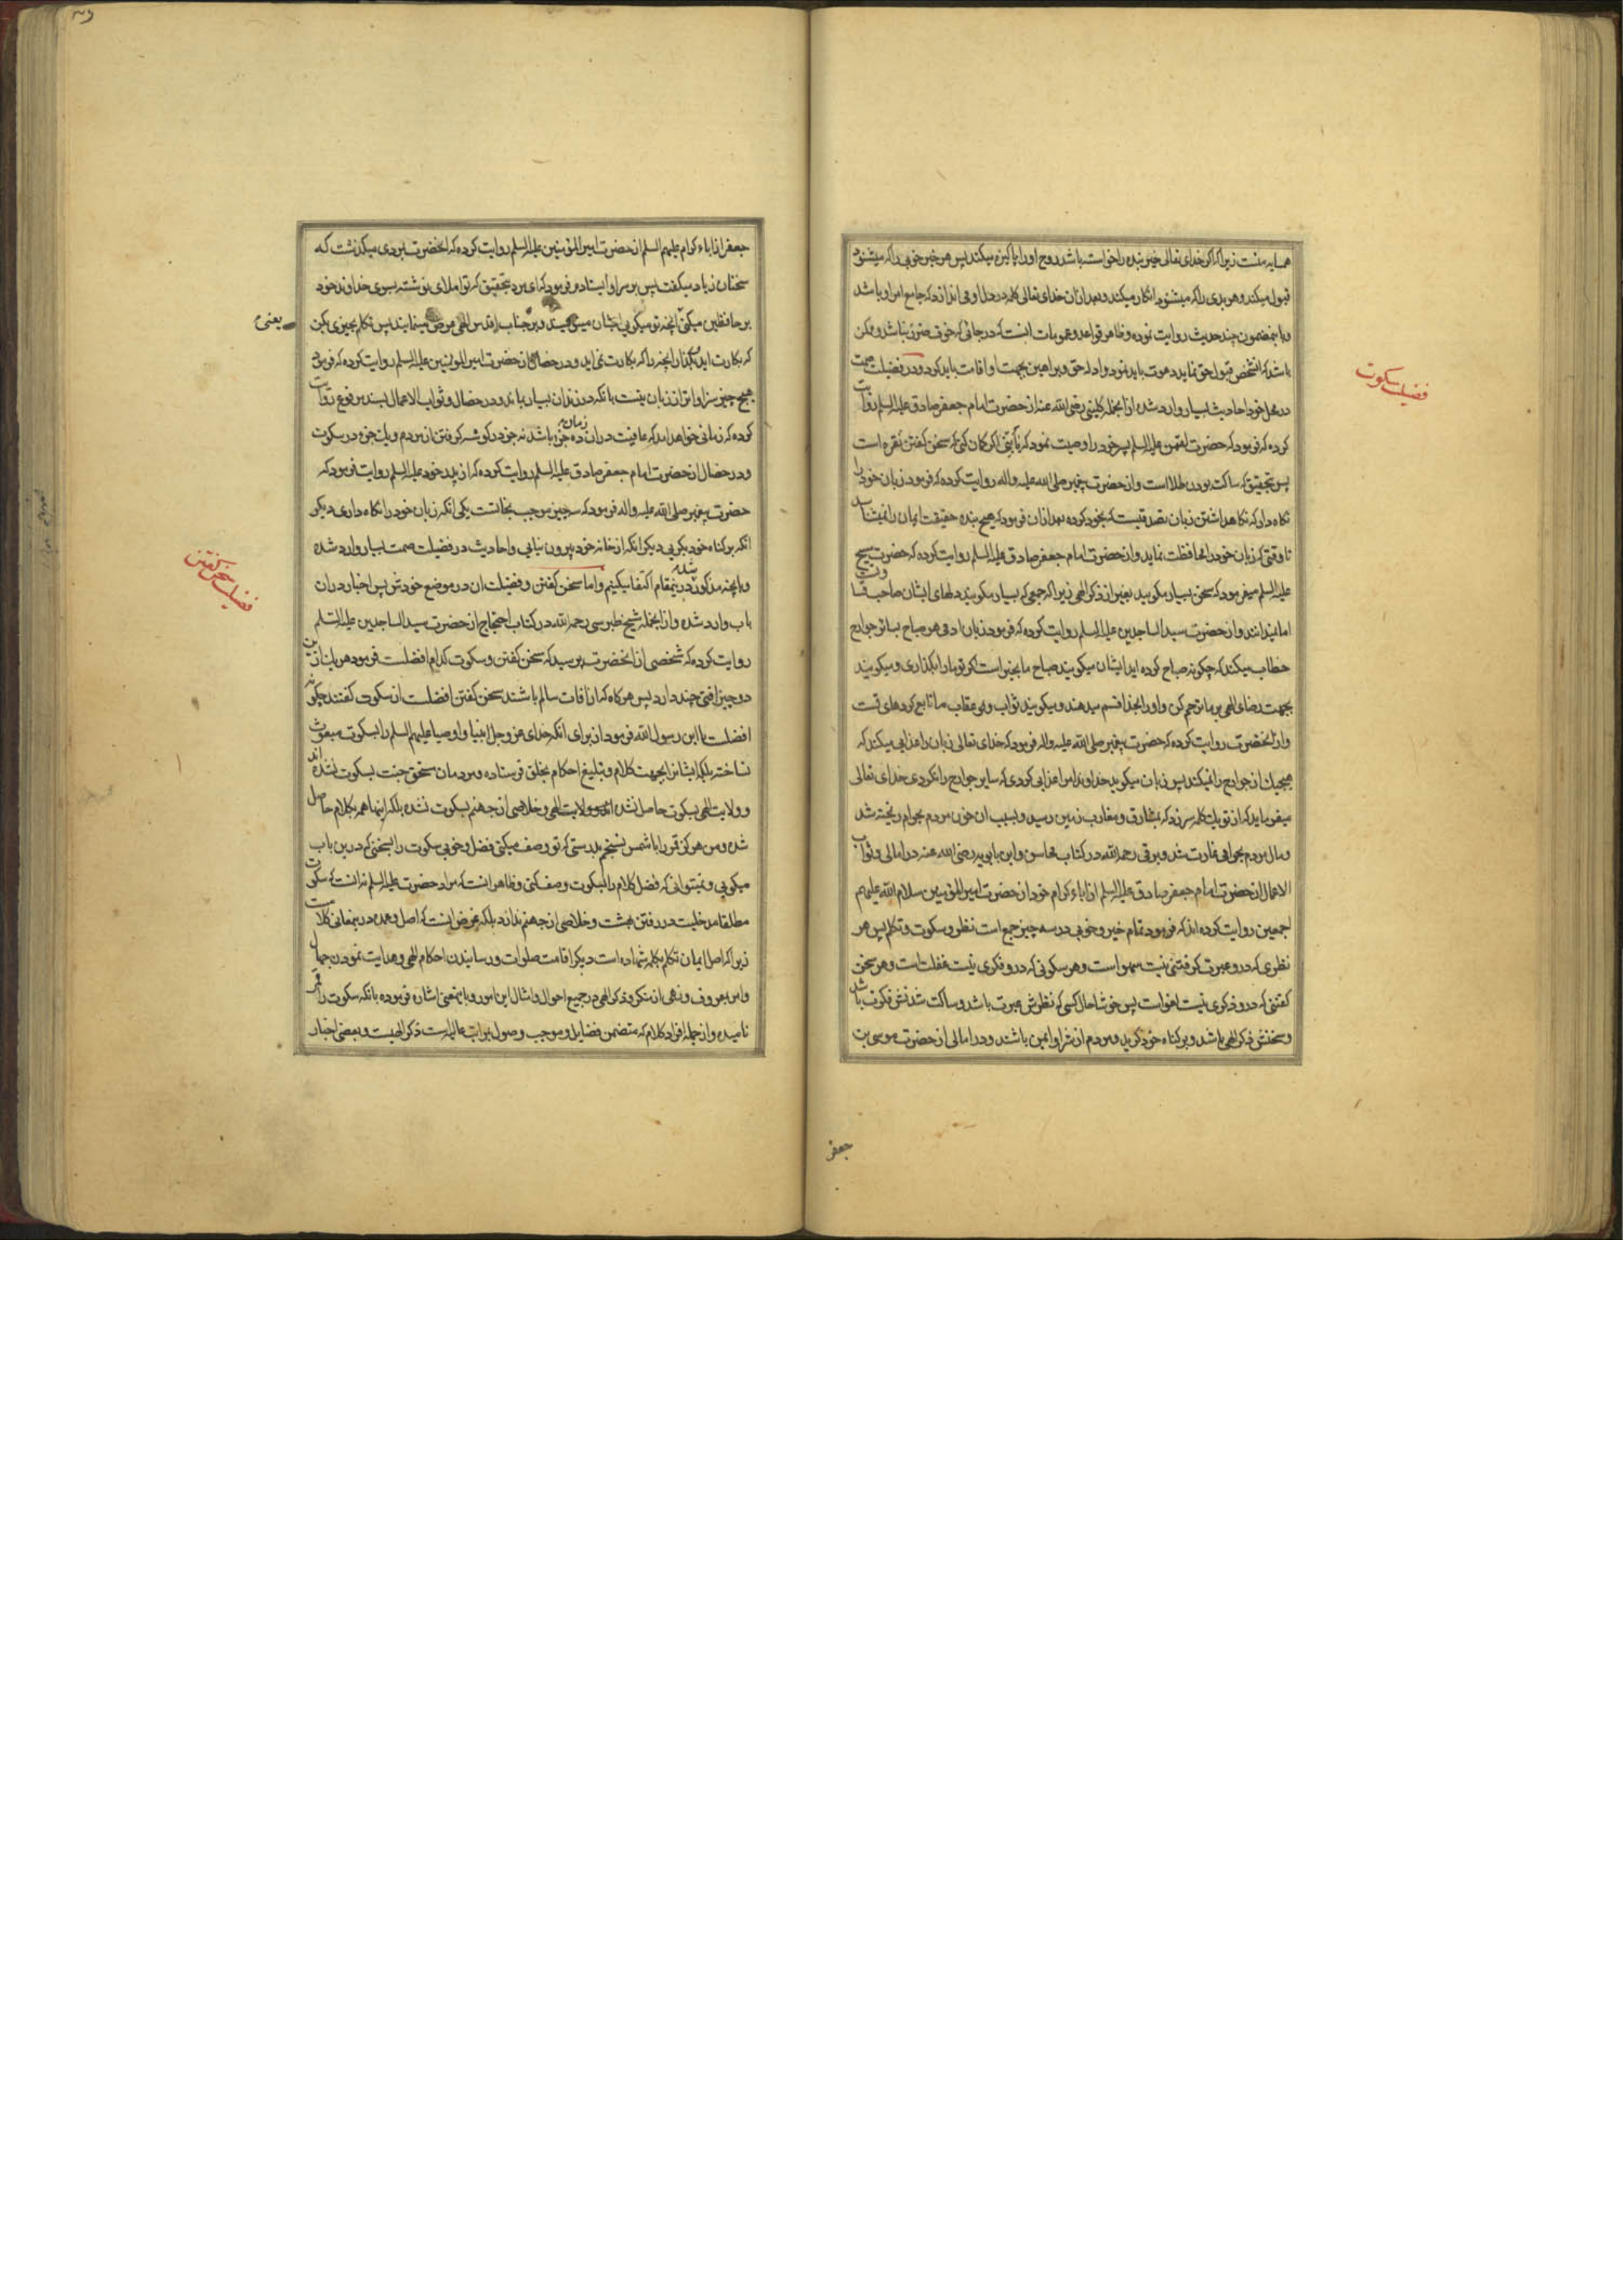 همسایه منست زیرا که اگر خدای تعالی خیر بنده را خواسته باشد روح او را پاکیزه میکند پس هر خیر خوبی را که میشنود
قبول میکند و هر بدی را که میشنود انکار میکند و بعد از آن خدای تعالی کلمه در دل او می اندازد که جامع امر او باشد
و باینمضمون چند حدیث روایت نموده و ظاهر قواعد و عمومات انست که در جائی که خوف ضرر نباشد و ممکن
باشد که انشخص قبول حق نماید دعوت باید نمود و ادله حق و براهین بجهت او اقامت باید کرد و در فضیلت صمت
در محل خود احادیث بسیار وارد شده ازانجمله کلینی رضی الله عنه از حضرت امام جعفر صادق علیه السلم روایت
کرده که فرمود که حضرت لقمن علیه السلم پسر خود را وصیت نمود که یا بنی اگر گمان کنی که سخن گفتن نقره است
پس بتحقیق که ساکت بودن طلا است و از حضرت پیغمبر صلی الله علیه و اله روایت کرده که فرمود زبان خود را
نگاه دار که نگاهداشتن زبان تصدقیست که بخود کرده بعد ازان فرمود که هیچ بنده حقیقت ایمان را نمیشناسد
تا وقتی که زبان خود را محافظت نماید و از حضرت امام جعفر صادق علیه السلم روایت کرده که حضرت مسیح
علیه السلم میفرمود که سخن بسیار مگویید بغیر از ذکر الهی زیرا که جمعی که بسیار میگویند دلهای ایشان صاحب قساوتست
اما نمیدانند و از حضرت سید الساجدین علیه السلم روایت کرده که فرمود زبان ادمی هر صباح بسایر جوارح
خطاب میکند که چگونه صباح کرده اید ایشان میگویند صباح ما بخیر است اگر تو ما را بگذاری و میگویند
بجهت رضای الهی بر ما ترحم کن و او را بخدا قسم میدهند و میگویند ثواب و عقاب ما تابع کردهای تست
و از انحضرت روایت کرده که حضرت پیغمبر صلی الله علیه و اله فرمود که خدای تعالی زبان را عذابی میکند که
هیچیک از جوارح را نمیکند پس زبان میگوید خداوندا مرا عذابی کردی که سایر جوارح را نکردی خدای تعالی
میفرماید که از تو یک کلمه سر زد که بمشارق و مغارب زمین رسید و بسبب ان خون مردم بحرام ریخته شد
و مال مردم بحرامی غارت شد و برقی رحمه الله در کتاب محاسن و ابن بابویه رضی الله عنه در امالی و ثواب
الاعمال از حضرت امام جعفر صادق علیه السلم از اباء کرام خود از حضرت امیر المؤمنین سلام الله علیهم
اجمعین روایت کرده اند که فرمود تمام خیر و خوبی در سه چیز جمع است نظر و سکوت و تکلم پس هر
نظری که درو عبرت گرفتنی نیست سهو است و هر سکوتی که درو فکری نیست غفلت است و هر سخن
گفتنی که درو ذکری نیست لغو است پس خوشا حال کسی که نظرش عبرت باشد و ساکت شدنش فکرت باشد
و سخنش ذکر الهی باشد و بر گناه خود گرید و مردم از شر او ایمن باشند و در امالی از حضرت موسی بن
فضیلت سکوت
جعفر
جعفر از اباء کرام علیهم السلم از حضرت امیر المؤمنین علیه السلم روایت کرده که انحضرت بمردی میگذشت که
سخنان زیاد میگفت پس بر سر او ایستاد و فرمود که ای مرد بتحقیق که تو املای نوشته بسوی خداوند خود
بر حافظین میکنی انچه تو میگویی ایشان مینویسند و بر جناب اقدس الهی عرض مینمایند پس تکلم بچیزی بکن
که بکارت اید و بگذار انچه را که بکارت نمی اید و در خصال از حضرت امیر المؤمنین علیه السلم روایت کرده که فرمود
هیچ چیز سزاوارتر از زبان نیست بانکه در زندان بسیار بماند و در خصال و ثواب الاعمال بسند مرفوع روایت
کرده که زمانی خواهد امد که عافیت دران زمان ده جزء باشد نه جزء در گوشه گرفتن از مردم و یک جزء در سکوت
و در خصال از حضرت امام جعفر صادق علیه السلم روایت کرده که از پدر خود علیه السلم روایت فرمود که
حضرت پیغمبر صلی الله علیه و اله فرمود که سه چیز موجب نجاتست یکی انکه زبان خود را نگاه داری دیگر
انکه بر گناه خود بگریی دیگر انکه از خانه خود بیرون نیایی و احادیث در فضیلت صمت بسیار وارد شده
و بانچه مذکور شد درینمقام اکتفا میکنیم و اما سخن گفتن و فضیلت ان در موضع خودش پس اخبار دران
باب وارد شده و ازانجمله شیخ طبرسی رحمه الله در کتاب احتجاج از حضرت سید الساجدین علیه السلم
روایت کرده که شخصی از انحضرت پرسید که سخن گفتن و سکوت کدام افضلست فرمود هر یک ازین
دو چیز افتی چند دارد پس هر گاه که از افات سالم باشند سخن گفتن افضلست از سکوت گفتند چگونه
افضلست یا ابن رسول الله فرمود از برای انکه خدای عز و جل انبیا و اوصیا علیهم السلم را بسکوت مبعوث
نساخته بلکه ایشانرا بجهت کلام و تبلیغ احکام بخلق فرستاده و مردمان مستحق جنت بسکوت نشده اند
و ولایت الهی بسکوت حاصل نشده و خلاصی از جهنم بسکوت نشده بلکه اینها همه بکلام حاصل
شده و من هرگز قمر را با شمس نسنجم بدرستی که تو وصف میکنی فضل و خوبی سکوت را بسخنی که درین باب
میگویی و نمیتوانی که فضل کلام را بسکوت وصف کنی و ظاهر انست که مراد حضرت علیه السلم نه انست که سکوت
مطلقا مدخلیت در رفتن بهشت و خلاصی از جهنم ندارد بلکه غرض انست که اصل و عمده درینمعانی کلامست
زیرا که اصل ایمان تکلم بکلمه شهاده است دیگر اقامت صلوات و رسانیدن احکام الهی و هدایت نمودن جهال
و امر بمعروف و نهی از منکر و ذکر الهی در جمیع احوال و امثال این امور و باینمعنی اشاره فرموده بانکه سکوت را قمر
نامیده و از جمله افراد کلام که متضمن فضایل و موجب وصول بمراتب عالیه است ذکر الهیست و بعضی اخبار
یعنی
فضیلت سخن گفتن